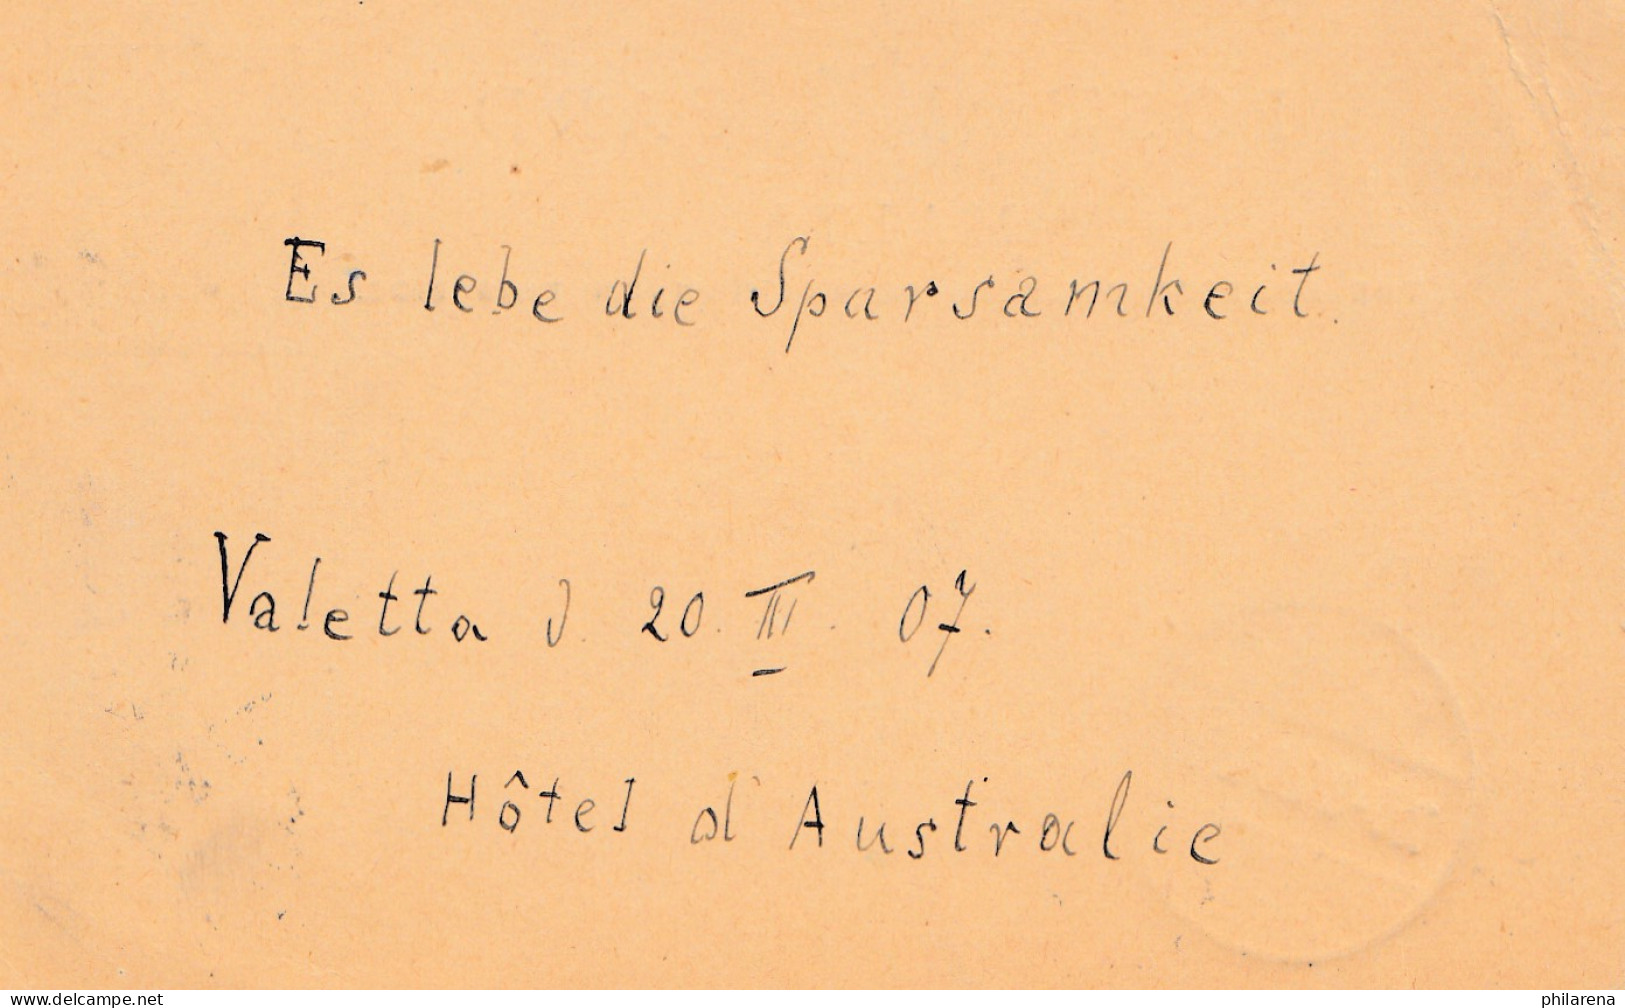 Es lebe die Sparsamkeit.
Valetta d. 20. III. 07.
Hôtel d'Australie
www.delcampe.net
philarena